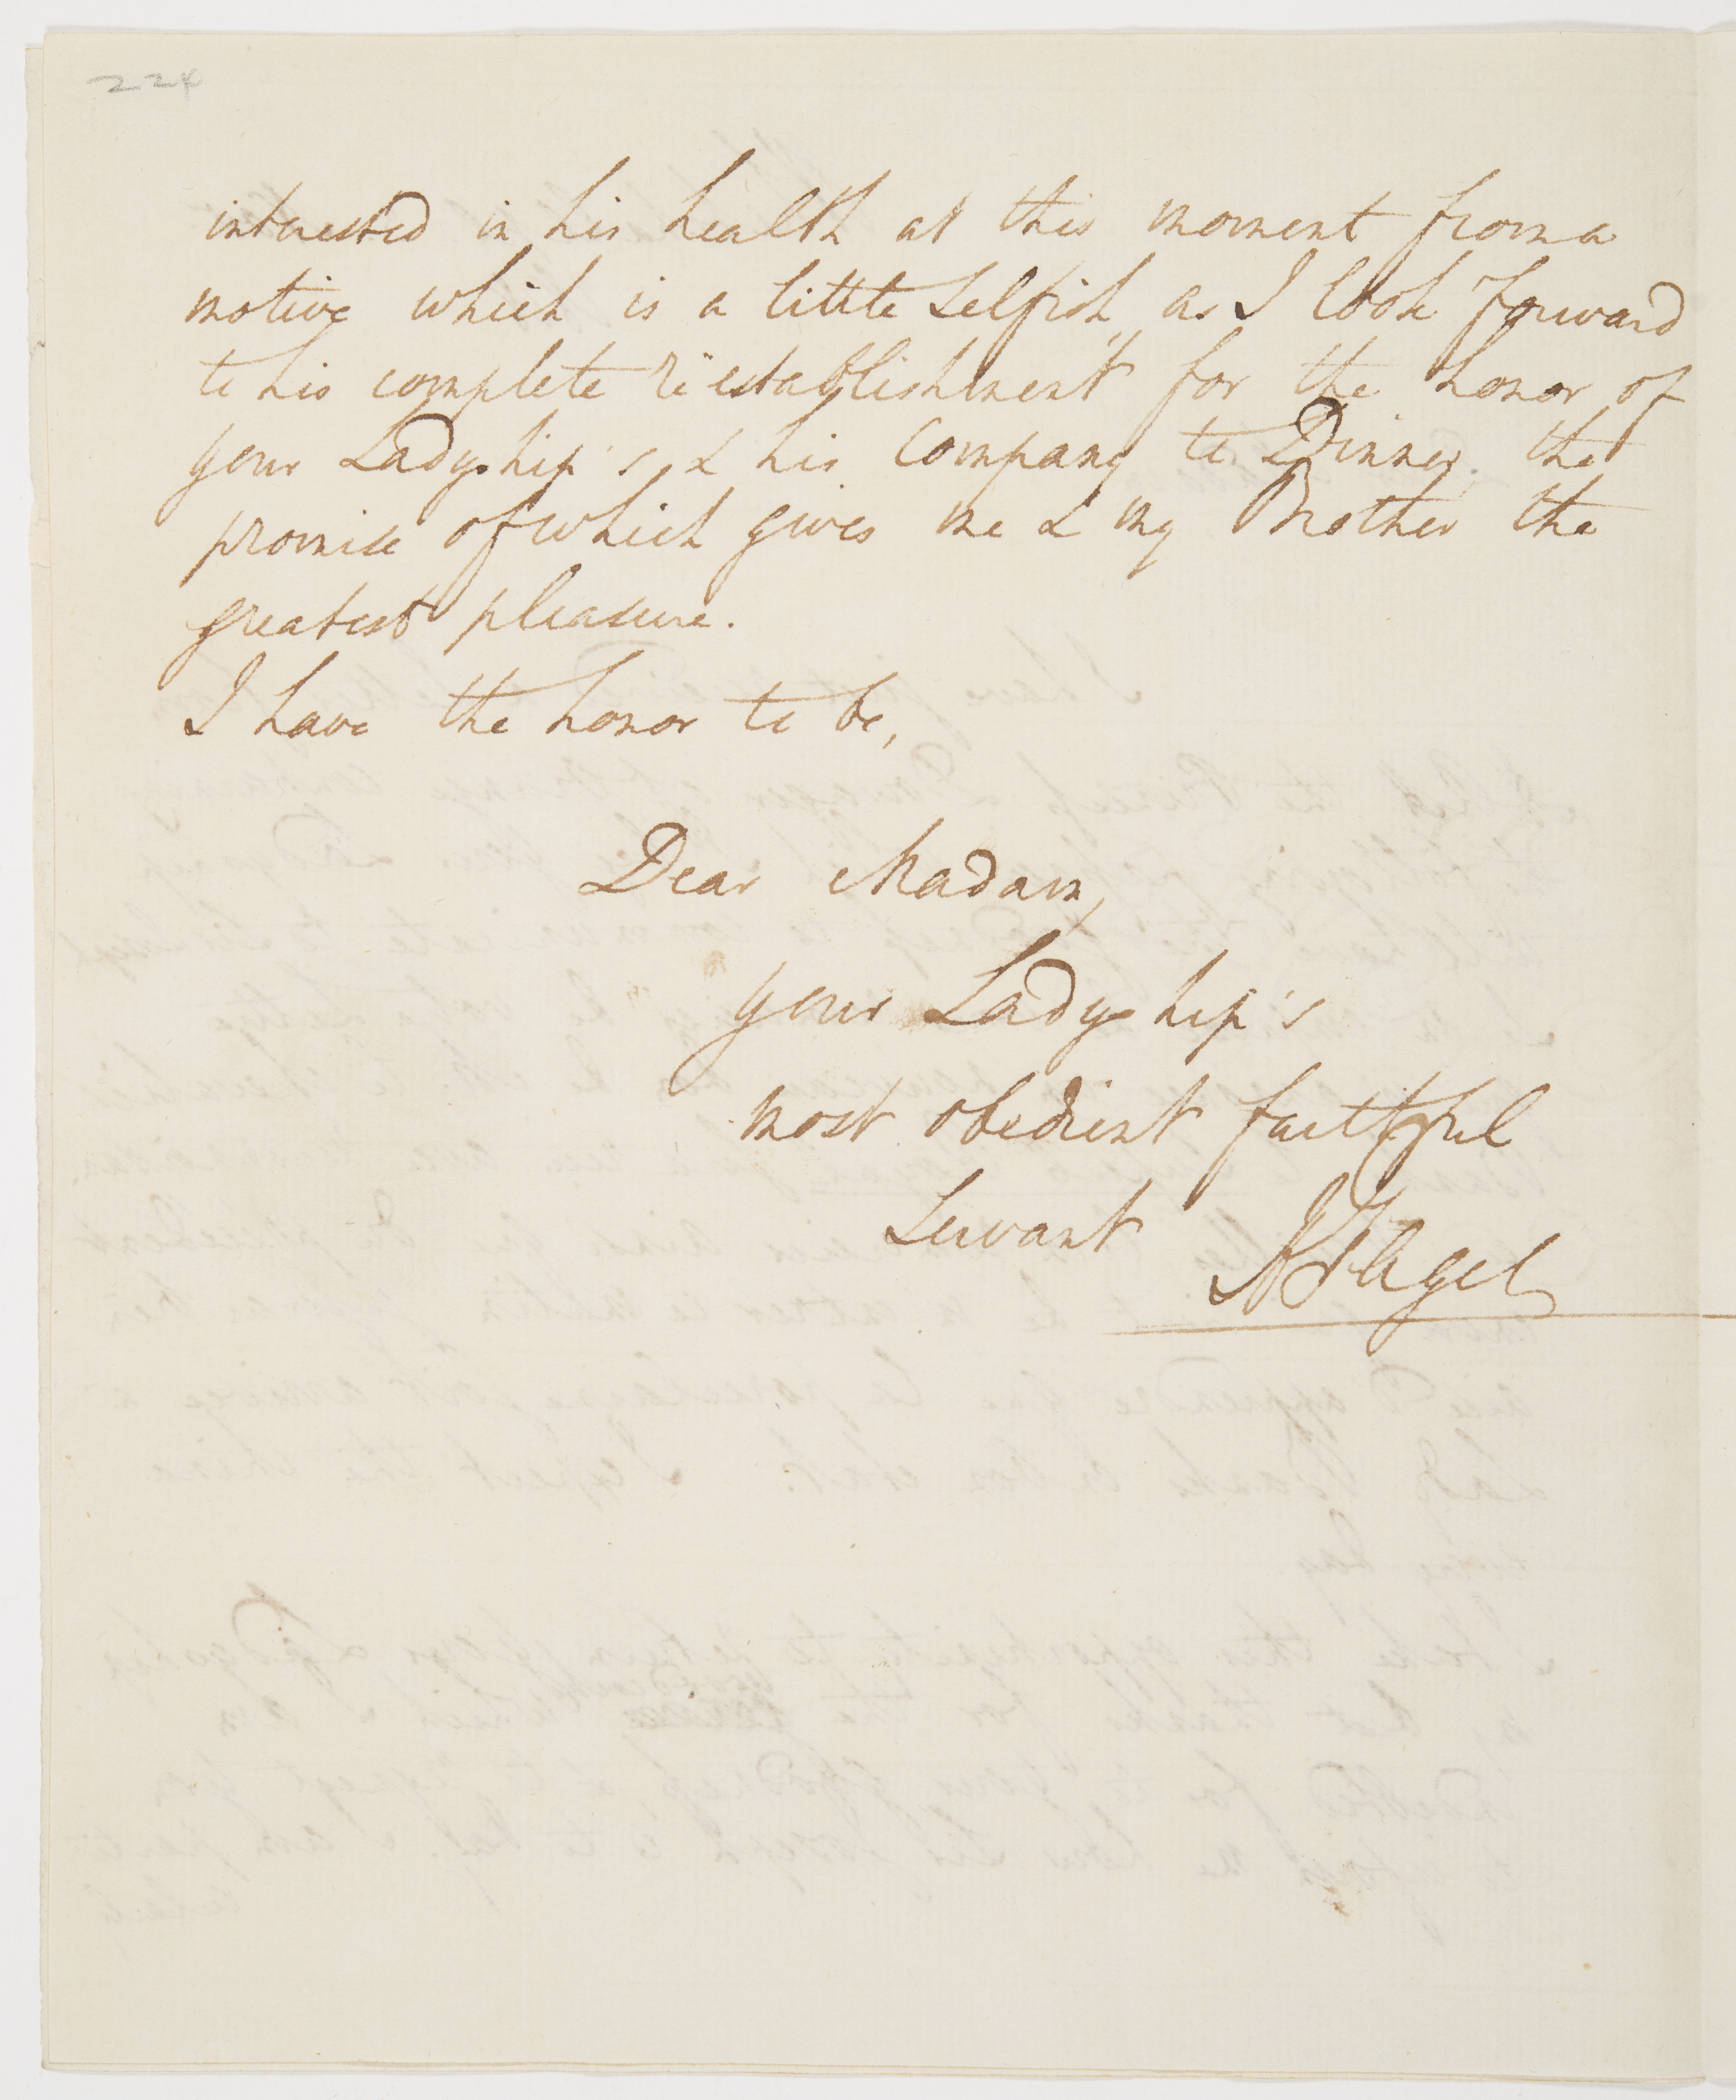 224
interested in his health at this moment from a
motive which is a little selfish, as I look forward
to his complete rëestablishment for the honor of
your Ladyship's & his Company to Dinner, the
promise of which gives me & my Brother the
greatest pleasure.
I have the honor to be,
Dear Madam,
your Ladyship's
most obedient faithful
Servant